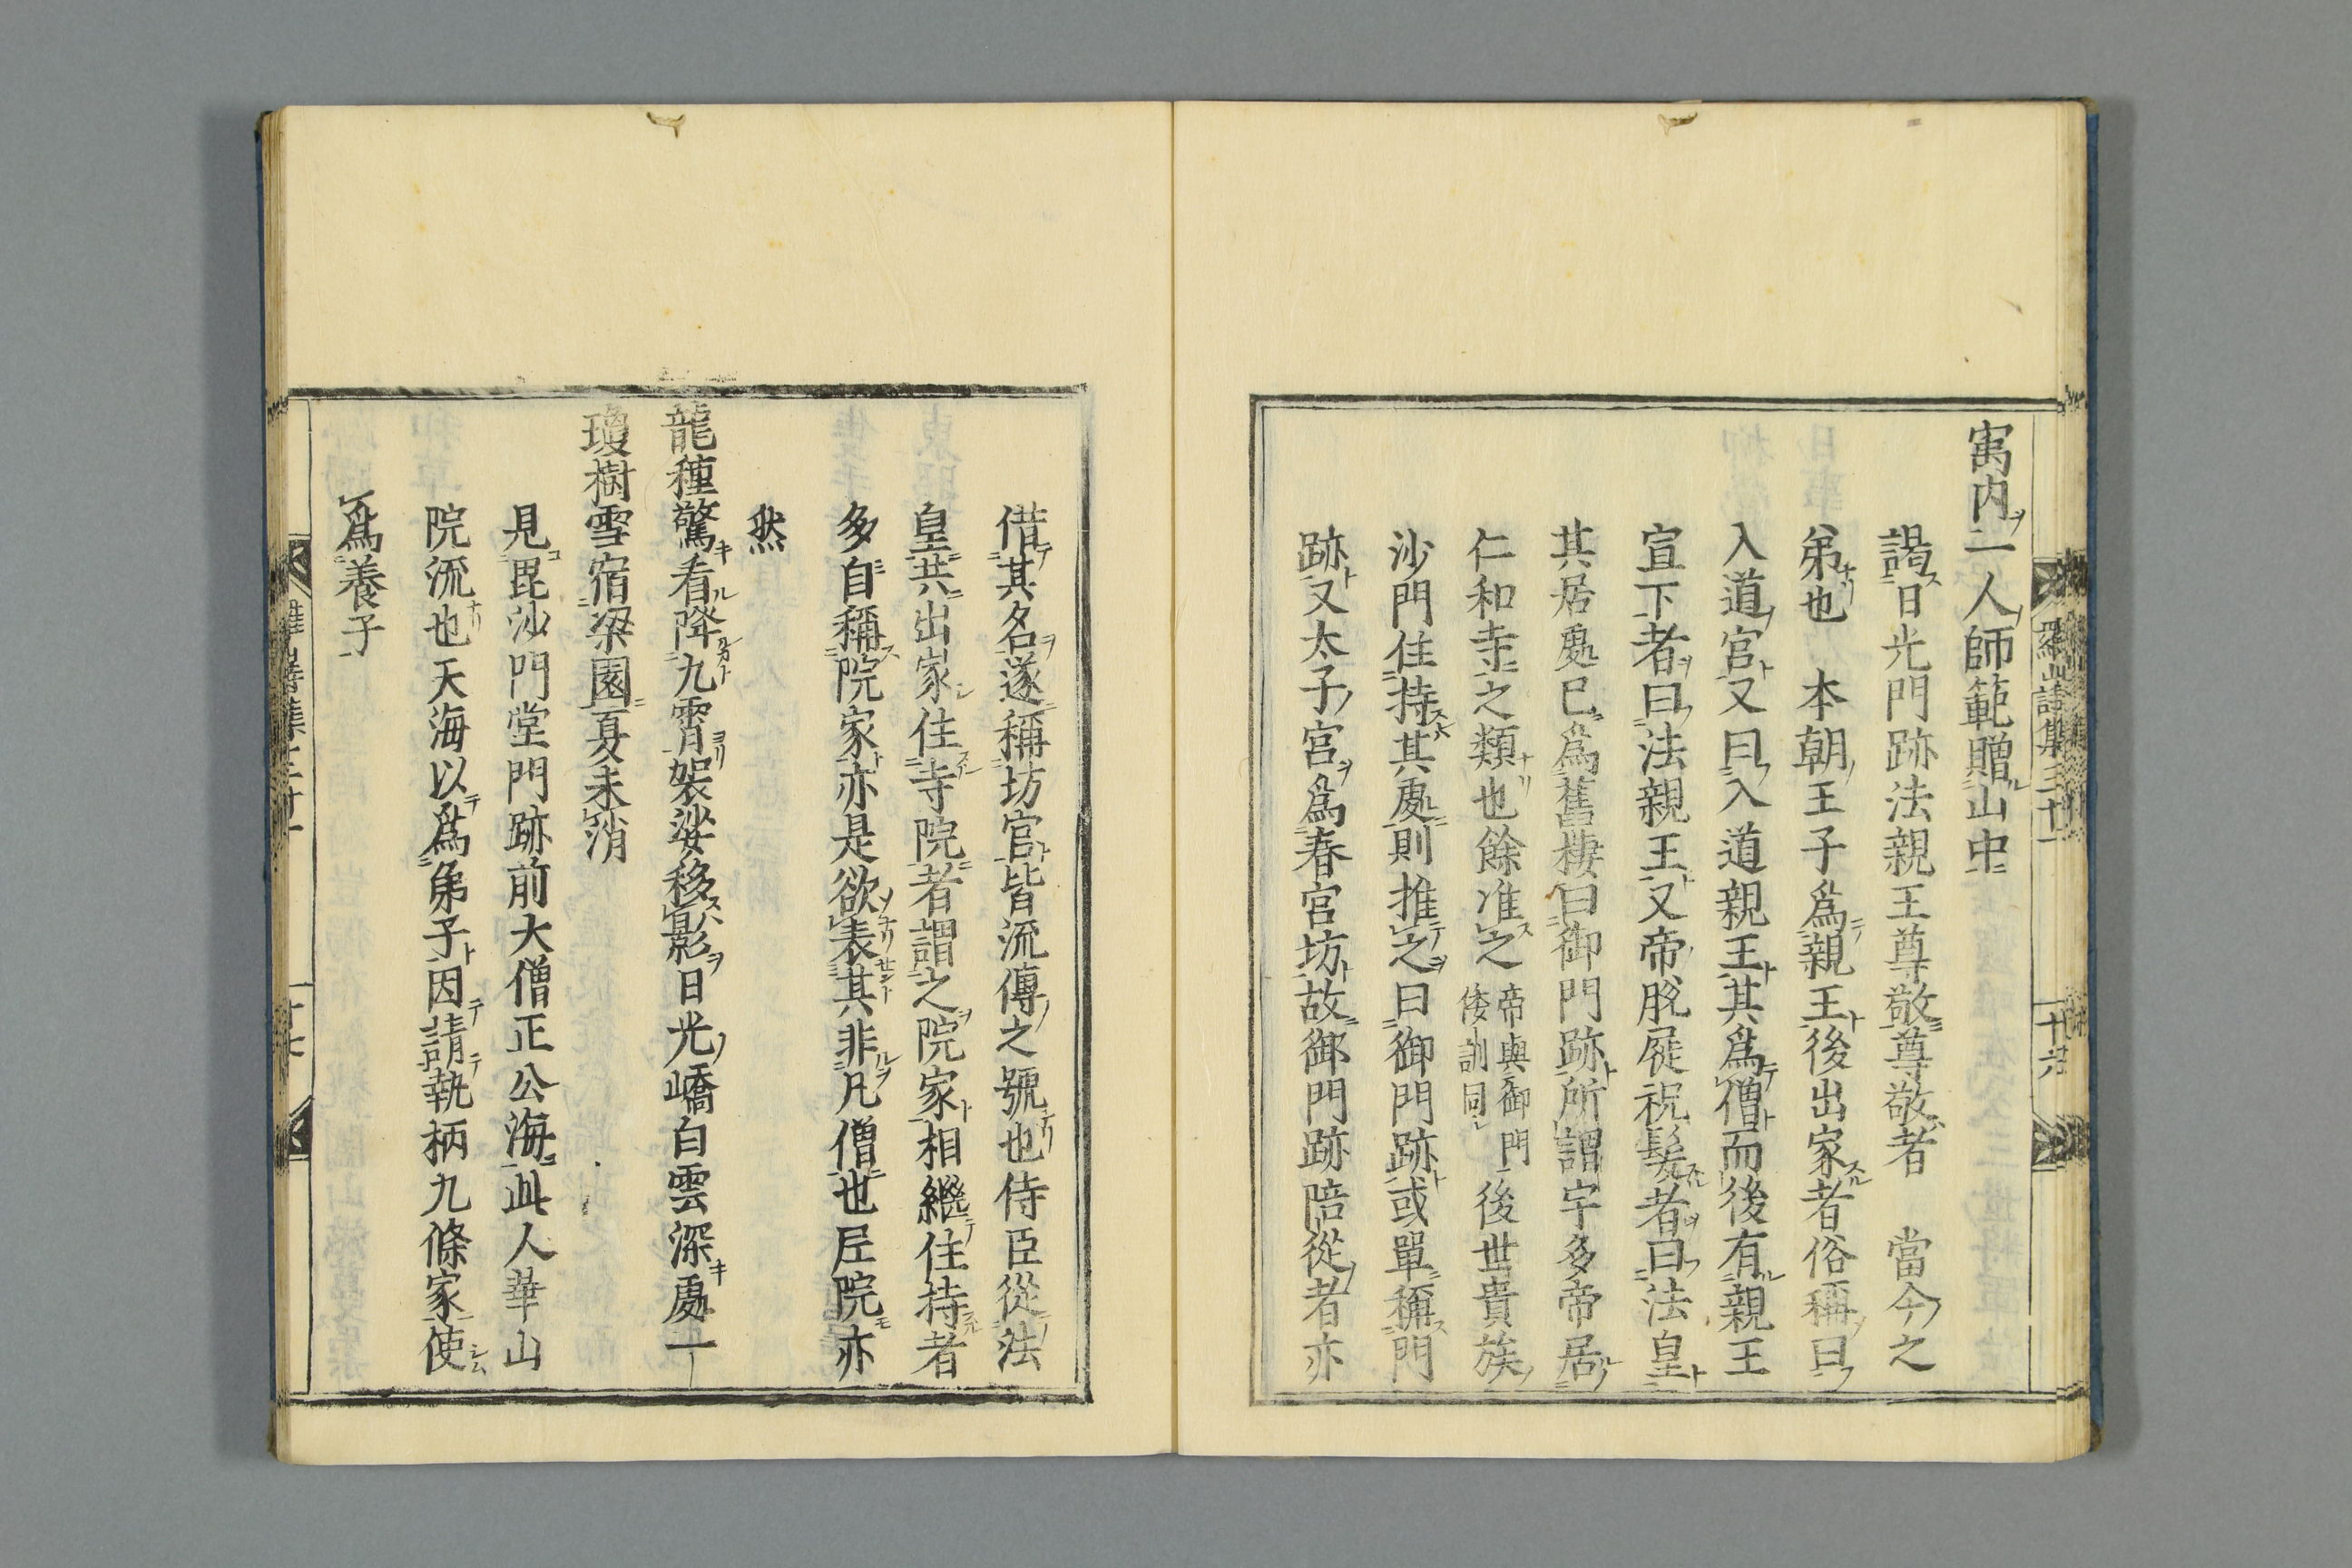 寓内一人師範贈山中
謁日光門跡法親王尊敬尊敬者　當今之
弟也　本朝王子爲親王後出家者俗稱曰
入道宮又曰入道親王其爲僧而後有親王
宣下者曰法親王又帝脱屣祝髮者曰法皇
其居處已爲舊棲曰御門跡所謂宇多帝居
仁和寺之類也餘准之帝與御門倭訓同後世貴族
沙門住持其處則推之曰御門跡或單稱門
跡又太子宮爲春宮坊故御門跡陪從者亦
借其名遂稱坊官皆流傳之號也侍臣從法
皇共出家住寺院者謂之院家相繼住持者
多自稱院家亦是欲表其非凡僧也𡉄院亦
然
龍種驚看降九霄袈裟移影日光嶠白雲深處一
瓊樹雪宿梁園夏未消
見毘沙門堂門跡前大僧正公海此人華山
院流也天海以爲弟子因請執柄九條家使
爲養子
羅山詩集三十一　十六
羅山詩集三十一　十七